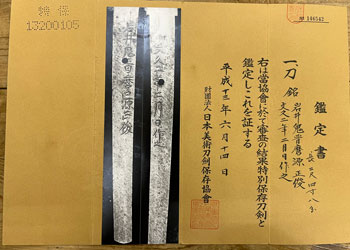 鑑定書
一、刀 銘 岩井鬼晋麿源正俊
文久二年二月日作之
長 弍尺四寸八分
右は當協會に於て審査の結果特別保存刀剣と
鑑定しこれを証する
平成十三年六月十四日
財團法人日本美術刀剣保存協會
№ 146542
特保
13200105